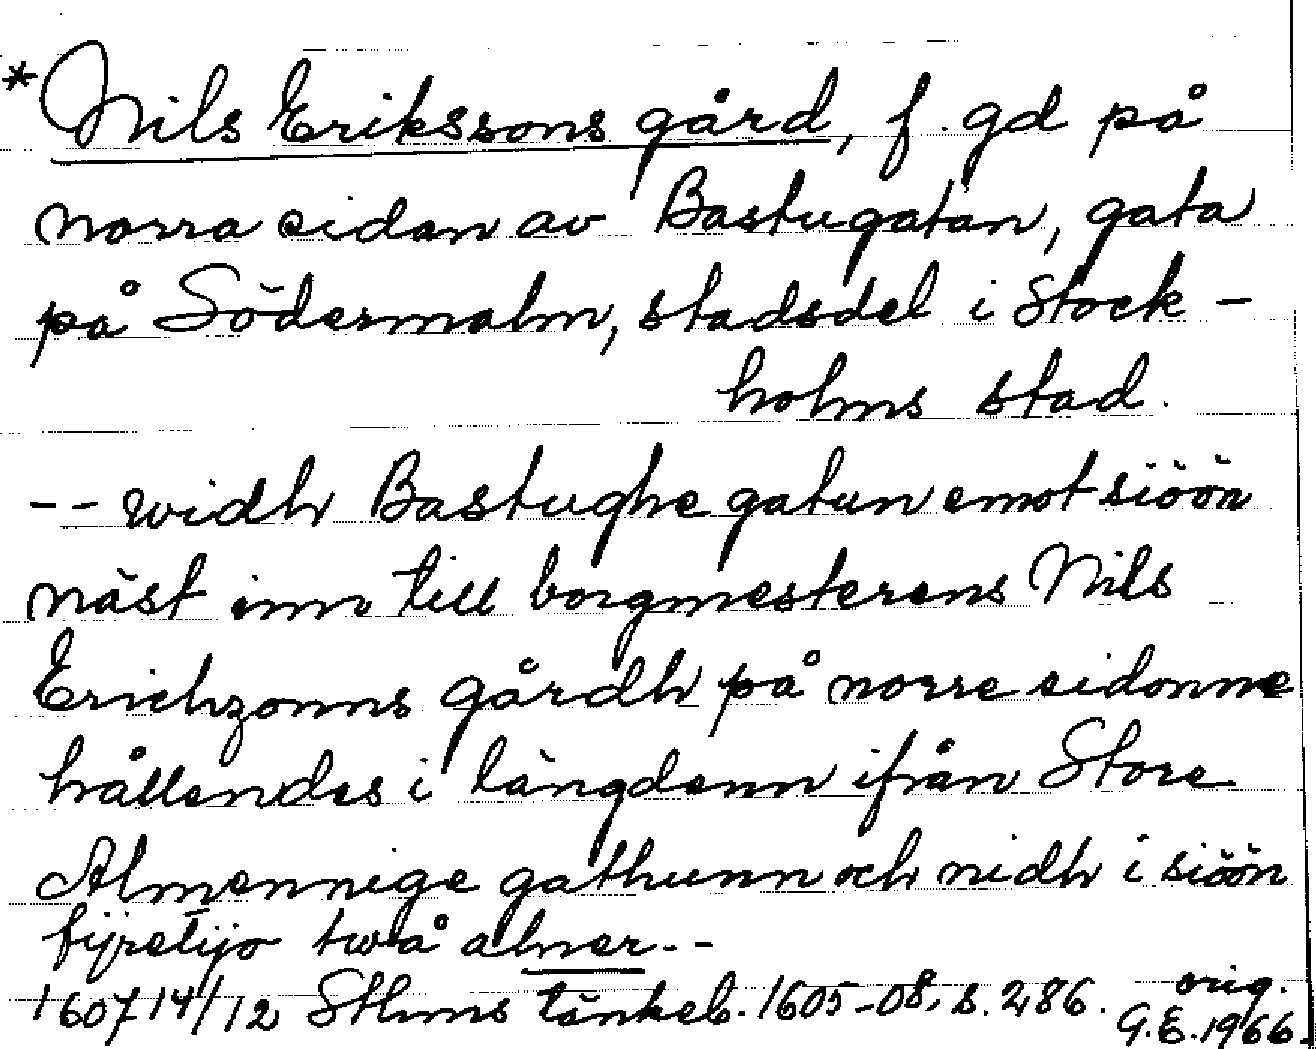 * Nils Erikssons gård, f. gd på
norra sidan av Bastugatan, gata
på Södermalm, stadsdel i Stock-
holms stad.
-- widh Bastughe gatun emot siöön
näst inn till borgmesterens Nils
Erichzonns gårdh på norre sidonne
hållendes i längdenn ifrån Store
Almennige gathunn och nidh i siöön
fijretijo twå alner--
1607 14/12 Sthms tänkeb. 1605-08, s. 286. orig.
G.E. 1966.